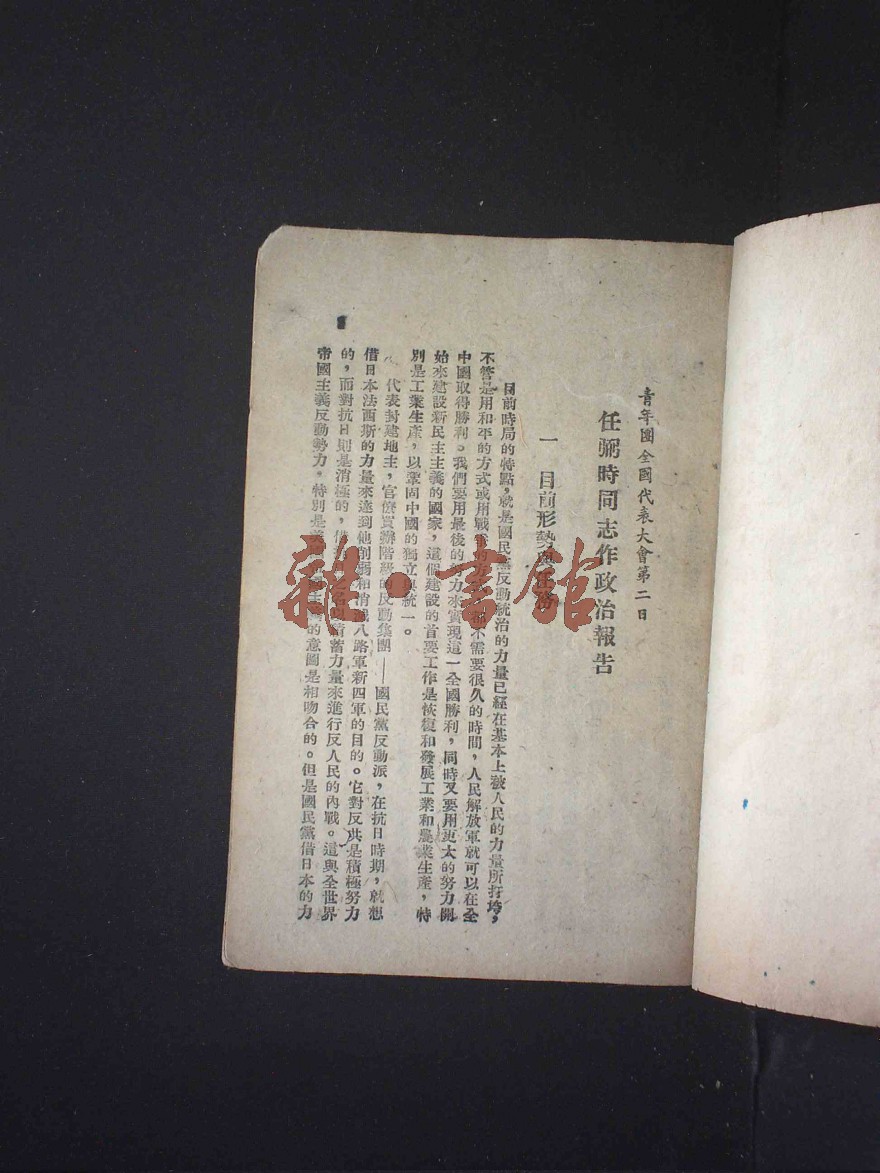 青年團全國代表大會第二日
任弼時同志作政治報告
一 目前形勢與任務
目前時局的特點，就是國民黨反動統治的力量已經在基本上被人民的力量所打垮，
不管是用和平的方式或用戰爭的方式，都不需要很久的時間，人民解放軍就可以在全
中國取得勝利。我們要用最後的努力來實現這一全國勝利，同時又要用更大的努力開
始來建設新民主主義的國家，這個建設的首要工作是恢復和發展工業和農業生產，特
別是工業生產，以鞏固中國的獨立與統一。
代表封建地主，官僚買辦階級的反動集團——國民黨反動派，在抗日時期，就想
借日本法西斯的力量來達到他削弱和消滅八路軍新四軍的目的。它對反共是積極努力
的，而對抗日則是消極的，借抗日之名以積蓄力量來進行反人民的內戰。這與全世界
帝國主義反動勢力，特別是美國帝國主義的意圖是相吻合的。但是國民黨借日本的力
雜·書館